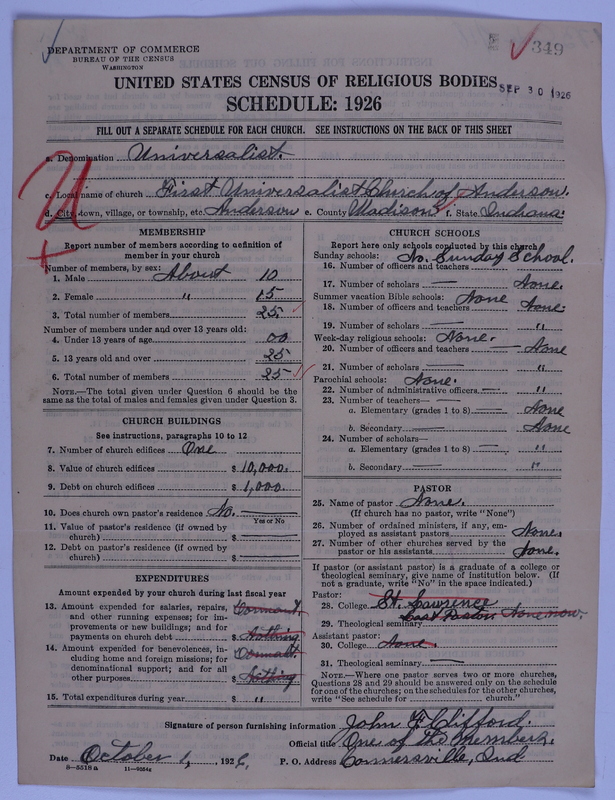 DEPARTMENT OF COMMERCE
BUREAU OF THE CENSUS
WASHINGTON
349
UNITED STATES CENSUS OF RELIGIOUS BODIES
SEP 30 1926
SCHEDULE: 1926
FILL OUT A SEPARATE SCHEDULE FOR EACH CHURCH. SEE INSTRUCTIONS ON THE BACK OF THIS SHEET
U
a. Denomination Universalist.
c. Local name of church First Universalist Church of Anderson.
d. City, town, village, or township, etc. Anderson e. County Madison f. State Indiana.
MEMBERSHIP
Report number of members according to definition of
member in your church
Number of members, by sex:
1. Male About 10
2. Female " 15
3. Total number of members 25
Number of members under and over 13 years old:
4. Under 13 years of age 00
5. 13 years old and over 25
6. Total number of members 25
NOTE.—The total given under Question 6 should be
same as the total of males and females given under Question 3.
CHURCH BUILDINGS
See instructions, paragraphs 10 to 12
7. Number of church edifices One
8. Value of church edifices $ 10,000.
9. Debt on church edifices $ 1,000.
10. Does church own pastor's residence? No.
Yes or No
11. Value of pastor's residence (if owned by
church) $
12. Debt on pastor's residence (if owned by
church) $
EXPENDITURES
Amount expended by your church during last fiscal year
13. Amount expended for salaries, repairs, Dormant.
and other running expenses; for im-
provements or new buildings; and for
payments on church debt $ Nothing
14. Amount expended for benevolences, in- Dormant.
cluding home and foreign missions; for
denominational support; and for all
other purposes $ Nothing
15. Total expenditures during year $ "
CHURCH SCHOOLS
Report here only schools conducted by this church
Sunday schools: No Sunday School.
16. Number of officers and teachers
17. Number of scholars None.
Summer vacation Bible schools: None
18. Number of officers and teachers None.
19. Number of scholars "
Week-day religious schools: None.
20. Number of officers and teachers None
21. Number of scholars "
Parochial schools: None.
22. Number of administrative officers "
23. Number of teachers—
a. Elementary (grades 1 to 8) None
b. Secondary None
24. Number of scholars—
a. Elementary (grades 1 to 8) "
b. Secondary "
PASTOR
25. Name of pastor None.
(If church has no pastor, write "None")
26. Number of ordained ministers, if any, em-
ployed as assistant pastors None.
27. Number of other churches served by the
pastor or his assistants None.
If pastor (or assistant pastor) is a graduate of a college or
theological seminary, give name of institution below. (If
not a graduate, write "No" in the space indicated.)
Pastor:
28. College St. Lawrence
Last Pastor None now.
29. Theological seminary
Assistant pastor:
30. College None.
31. Theological seminary
NOTE.—Where one pastor serves two or more churches,
Questions 28 and 29 should be answered only on the schedule
for one of the churches; on the schedules for the other churches,
write "See schedule for church."
Signature of person furnishing information John F. Clifford.
Official title One of the members.
Date October 1, 1926. P. O. Address Connersville, Ind
8—5518a 11—9254